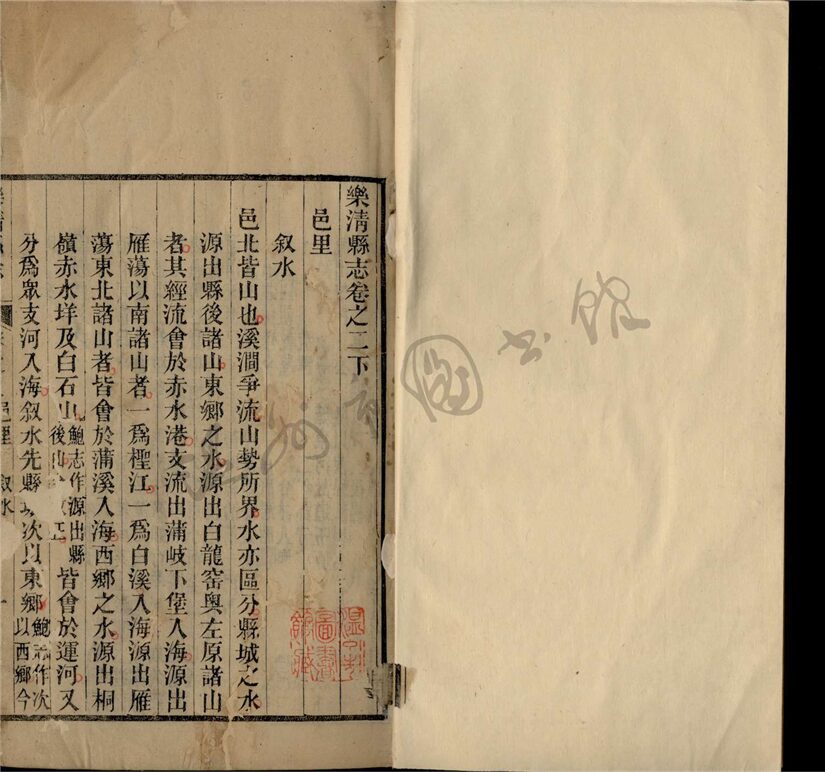 樂清縣志卷之二下
邑里
叙水
邑北皆山也溪澗爭流山勢所界水亦區分縣城之水
源出縣後諸山東鄉之水源出白龍窑奥左原諸山
者其經流會於赤水港支流出蒲岐下堡入海源出
雁蕩以南諸山者一爲檉江一爲白溪入海源出雁
蕩東北諸山者皆會於蒲溪入海西鄉之水源出桐
嶺赤水垟及白石山鮑志作源出縣後山正皆會於運河又
分爲眾支河入海叙水先縣次以東鄉鮑志作次以西鄉今
邑里 叙水 一
圖書館